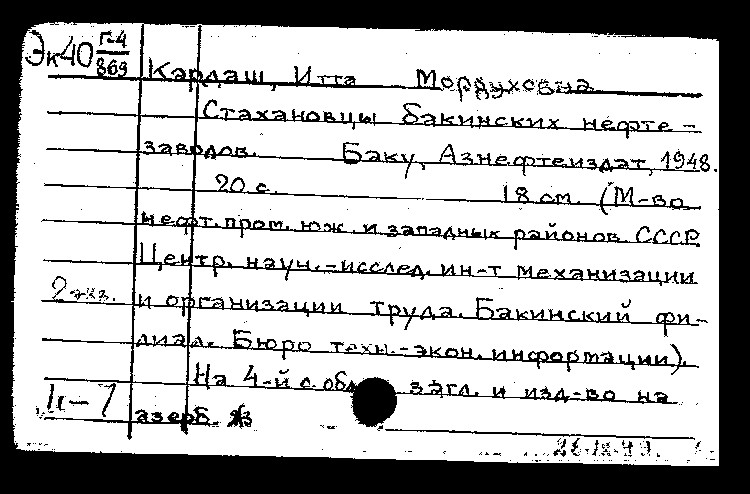 Эк40 Г-4
869
Кардаш, Итта Мордуховна
Стахановцы бакинских нефте-
заводов. Баку, Азнефтеиздат, 1948.
20 с. 18 см. (М-во
нефт. пром. юж. и западных районов СССР
Центр. науч.-исслед. ин-т механизации
2 экз. и организации труда. Бакинский фи-
лиал. Бюро техн.-экон. информации).
На 4-й с. обл. загл. и изд-во на
азерб. яз